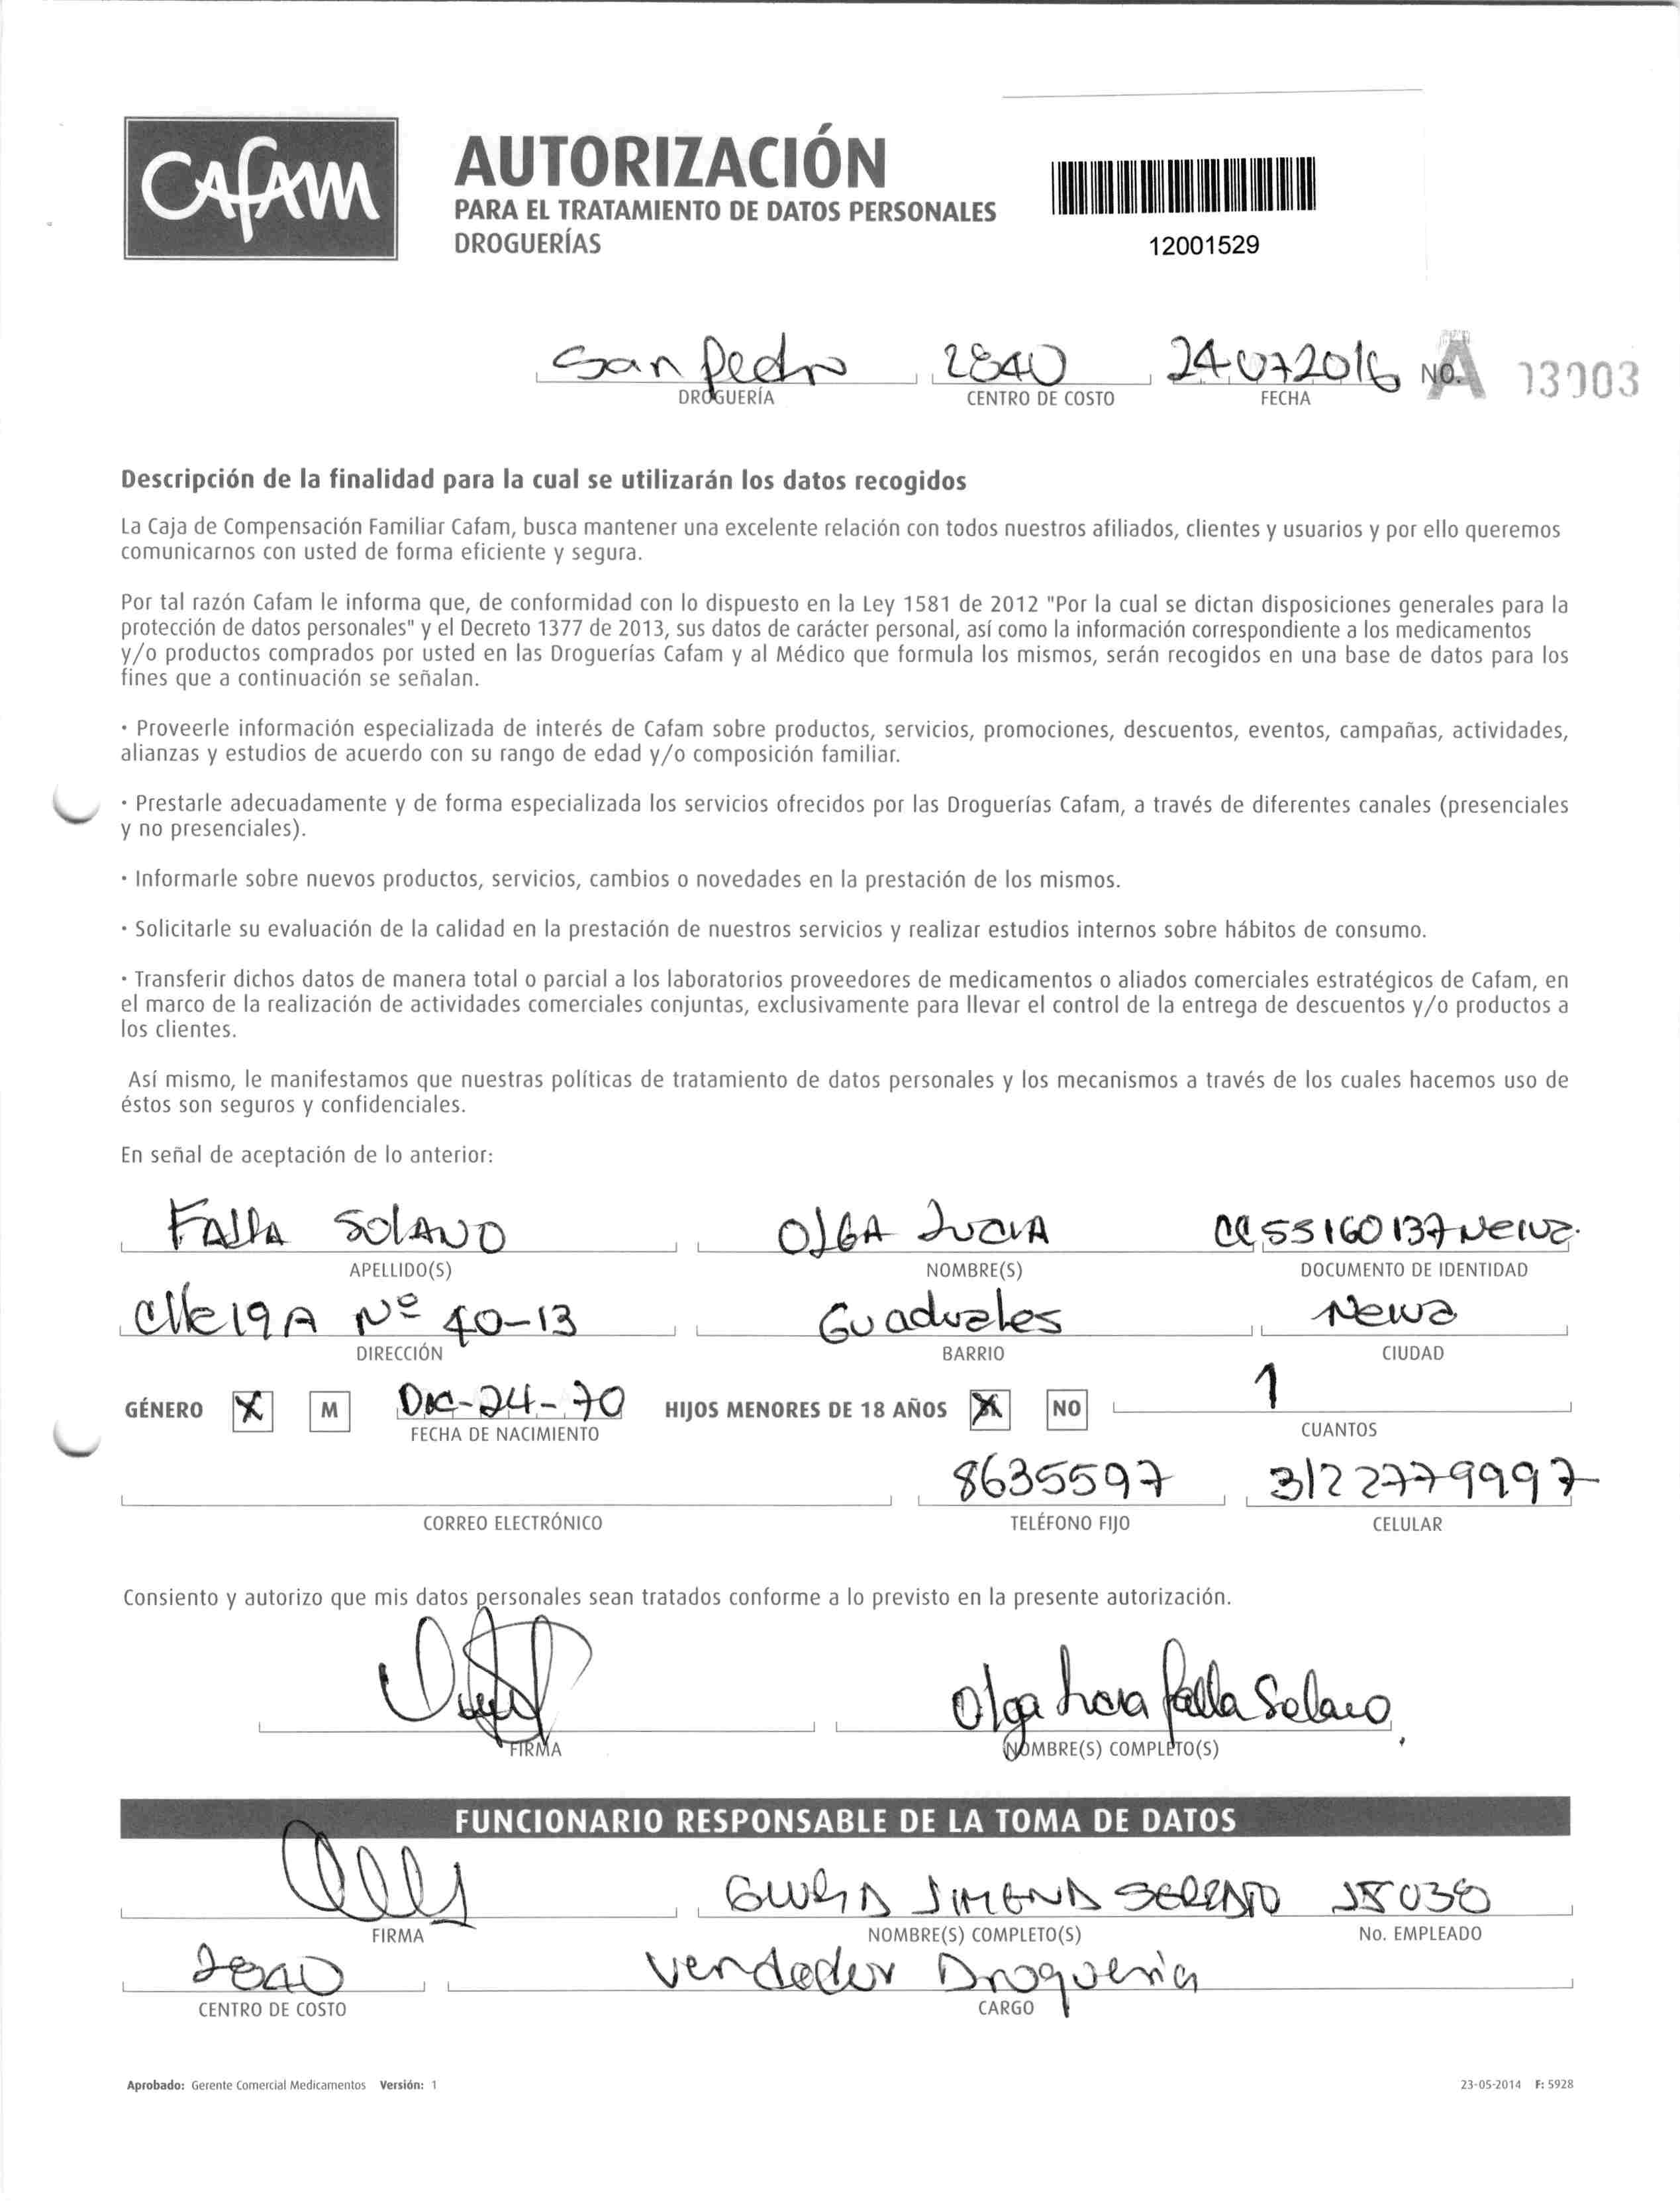 CAFAM
AUTORIZACIÓN
PARA EL TRATAMIENTO DE DATOS PERSONALES
DROGUERÍAS
12001529
San Pedro 2840 24072016 NO. A 13003
DROGUERÍA CENTRO DE COSTO FECHA
Descripción de la finalidad para la cual se utilizarán los datos recogidos
La Caja de Compensación Familiar Cafam, busca mantener una excelente relación con todos nuestros afiliados, clientes y usuarios y por ello queremos
comunicarnos con usted de forma eficiente y segura.
Por tal razón Cafam le informa que, de conformidad con lo dispuesto en la Ley 1581 de 2012 "Por la cual se dictan disposiciones generales para la
protección de datos personales" y el Decreto 1377 de 2013, sus datos de carácter personal, así como la información correspondiente a los medicamentos
y/o productos comprados por usted en las Droguerías Cafam y al Médico que formula los mismos, serán recogidos en una base de datos para los
fines que a continuación se señalan.
· Proveerle información especializada de interés de Cafam sobre productos, servicios, promociones, descuentos, eventos, campañas, actividades,
alianzas y estudios de acuerdo con su rango de edad y/o composición familiar.
· Prestarle adecuadamente y de forma especializada los servicios ofrecidos por las Droguerías Cafam, a través de diferentes canales (presenciales
y no presenciales).
· Informarle sobre nuevos productos, servicios, cambios o novedades en la prestación de los mismos.
· Solicitarle su evaluación de la calidad en la prestación de nuestros servicios y realizar estudios internos sobre hábitos de consumo.
· Transferir dichos datos de manera total o parcial a los laboratorios proveedores de medicamentos o aliados comerciales estratégicos de Cafam, en
el marco de la realización de actividades comerciales conjuntas, exclusivamente para llevar el control de la entrega de descuentos y/o productos a
los clientes.
Así mismo, le manifestamos que nuestras políticas de tratamiento de datos personales y los mecanismos a través de los cuales hacemos uso de
éstos son seguros y confidenciales.
En señal de aceptación de lo anterior:
Falla Solano Olga Lucia CC 55160137 Neiva.
APELLIDO(S) NOMBRE(S) DOCUMENTO DE IDENTIDAD
Clle 19A Nº 40-13 Guaduales Neiva
DIRECCIÓN BARRIO CIUDAD
GÉNERO X M Dic-24-70 HIJOS MENORES DE 18 AÑOS X NO 1
FECHA DE NACIMIENTO CUANTOS
8635597 312 2779997
CORREO ELECTRÓNICO TELÉFONO FIJO CELULAR
Consiento y autorizo que mis datos personales sean tratados conforme a lo previsto en la presente autorización.
Olga Lucia Falla Solano
FIRMA NOMBRE(S) COMPLETO(S)
FUNCIONARIO RESPONSABLE DE LA TOMA DE DATOS
JIMENA
FIRMA NOMBRE(S) COMPLETO(S) No. EMPLEADO
2840 Vendedor Drogueria
CENTRO DE COSTO CARGO
Aprobado: Gerente Comercial Medicamentos Versión: 1 23-05-2014 F: 5928